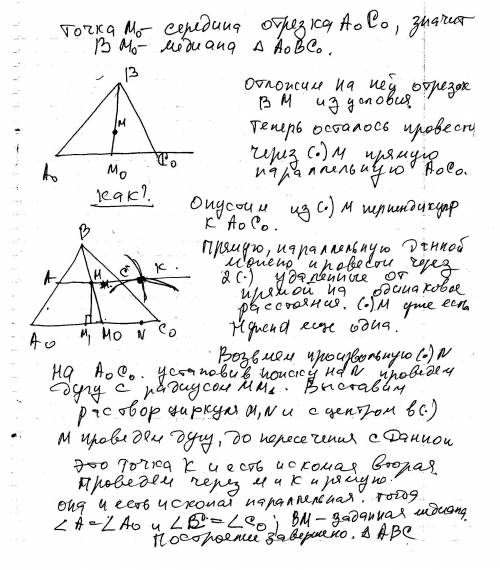 Точка M₀- середина отрезка A₀C₀, значит
BM₀- медиана △ A₀BC₀.
B
M
A₀
M₀
C₀
Отложим на ней отрезок
BM из условия.
Теперь осталось провести
через (·) M прямую
параллельную A₀C₀.
Как?
Опустим из (·) M перпендикуляр
к A₀C₀.
B
A
M
C
K
A₀
M₁
M₀
N
C₀
Прямую, параллельную данной
можно провести через
2(·) удаленные от
прямой на одинаковое
расстояние. (·) M уже есть
Нужна еще одна.
Возьмем произвольную (·) N
на A₀C₀. установив ножку на N проведем
дугу с радиусом MM₁. Выставим
раствор циркуля M₁N и с центром в (·)
M проведем дугу, до пересечения с данной
это точка K и есть искомая вторая.
Проведем через M и K прямую.
она и есть искомая параллельная. тогда
∠A=∠A₀ и ∠C=∠C₀; BM - заданная медиана.
Построение завершено. △ABC